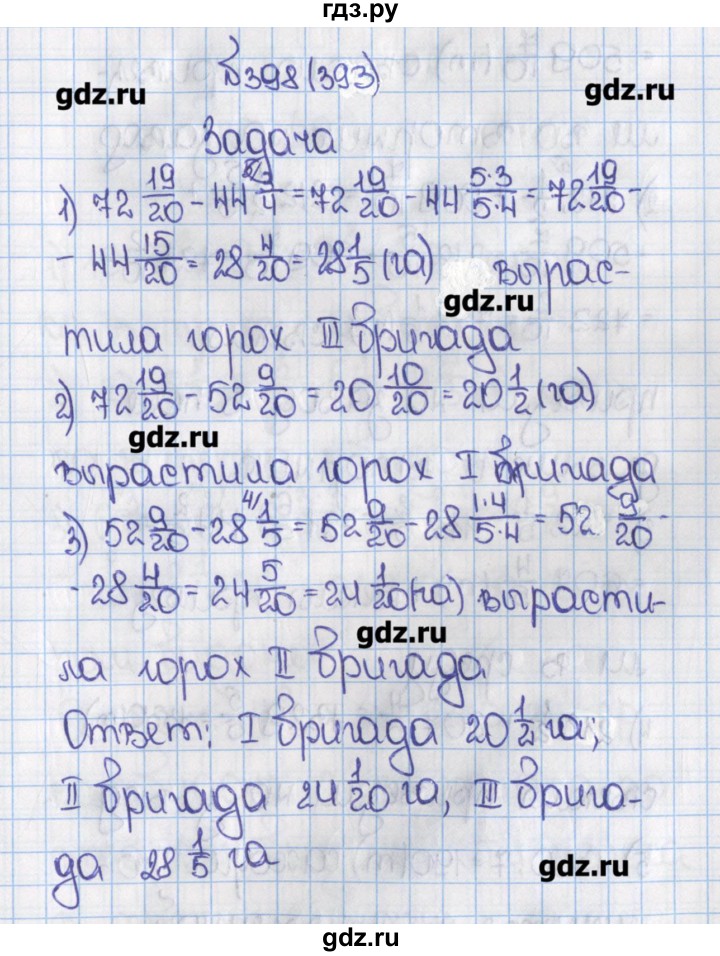 гдз.ру
№398(393)
gdz.ru
gdz.ru
Задача
1) 72 19/20 - 44 5/3/4 = 72 19/20 - 44 5·3/5·4 = 72 19/20 -
- 44 15/20 = 28 4/20 = 28 1/5 (га) вырас-
gdz.ru
тила горох III бригада
2) 72 19/20 - 52 9/20 = 20 10/20 = 20 1/2 (га)
gdz.ru
вырастила горох I бригада
3) 52 9/20 - 28 4/1/5 = 52 9/20 - 28 1·4/5·4 = 52 9/20 -
- 28 4/20 = 24 5/20 = 24 1/20 (га) вырасти-
gdz.ru
ла горох II бригада
Ответ: I бригада 20 1/2 га;
II бригада 24 1/20 га, III брига-
да 28 1/5 га
gdz.ru
gdz.ru